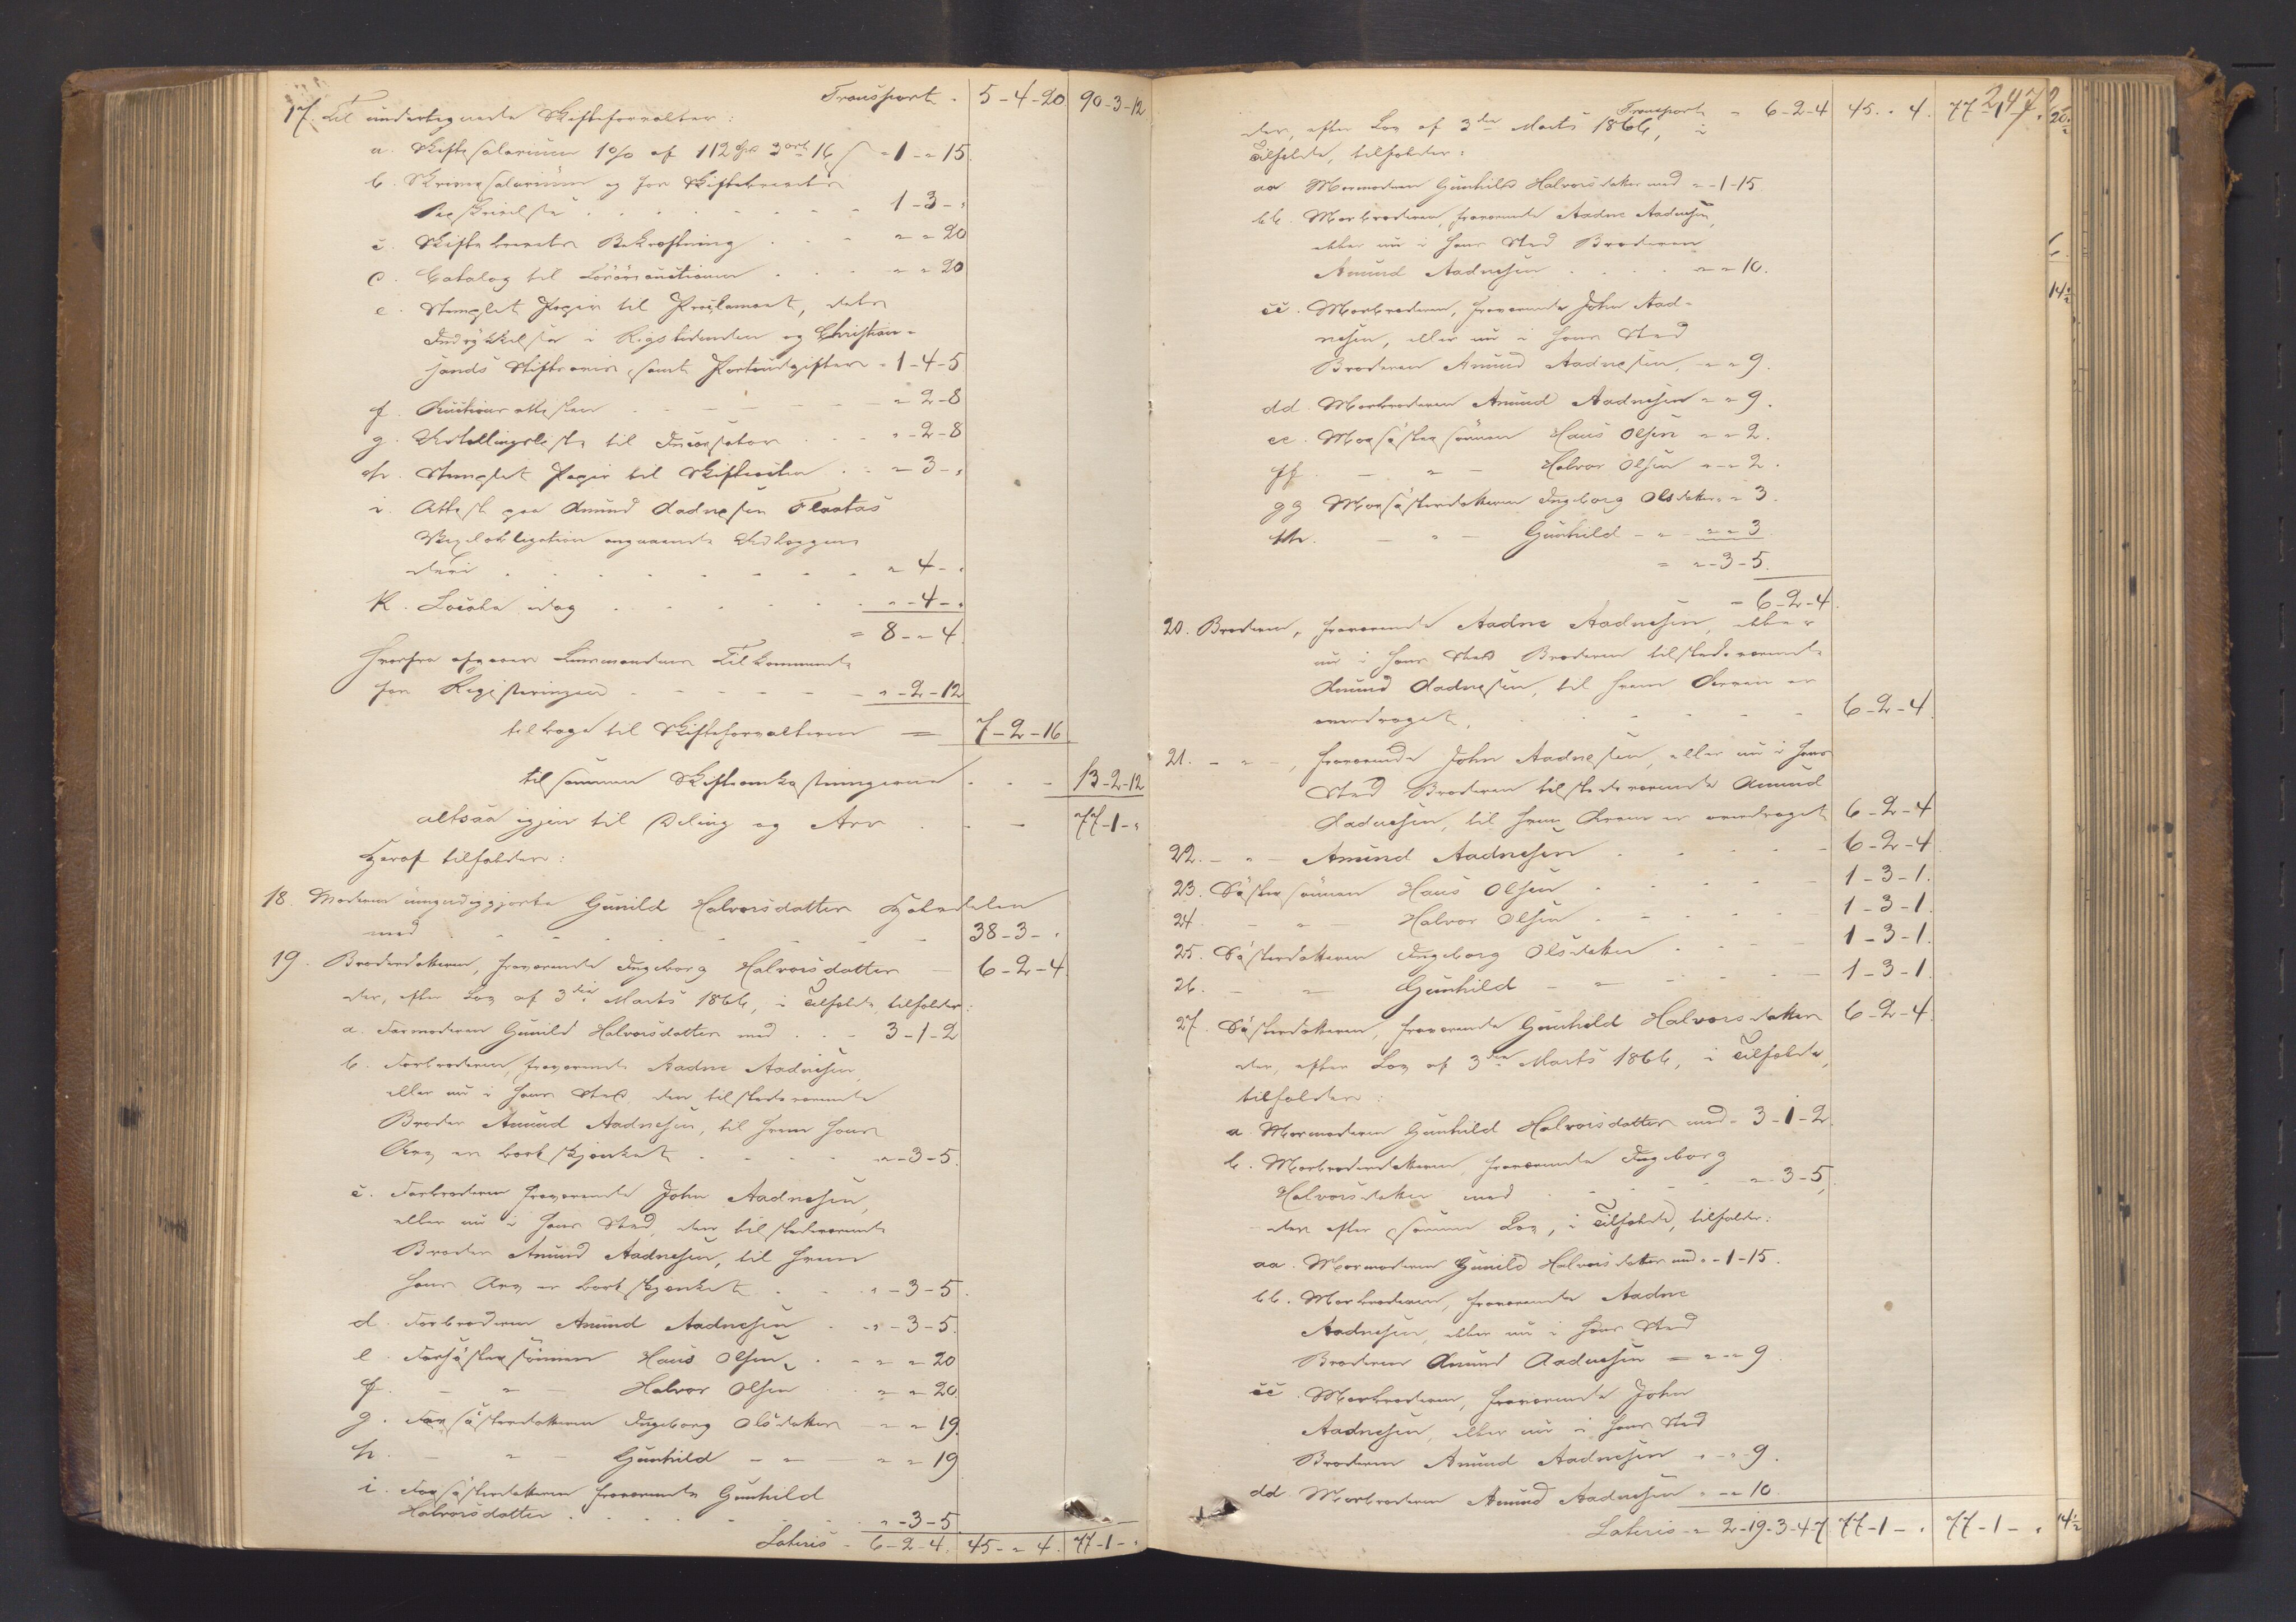 Transport - 5-4-20 90-3-12
17. Til undertegnede Skifteforvalter:
a. Skiftesalarium 1% af 112 Spd 3 ort 16 s " 1 - " 15
b. Skriversalarium og for Skiftebrevets
Beskrivelse . . . 1-3-"
c. Skiftebrevets Bekræftning . . . " " 20
d. Catalog til Løsøreauctionen . . . " " 20
e. Stemplet Papir til Proclamaet, dets
Indrykkelse i Rigstidenden og Christian-
sands Stiftsavis, samt Portoudgifter " 1-4-5
f. Auctionsattesten - - - " 2-8
g. Udtellingsliste til Incassator . . " - 2-8
h. Stemplet Papir til Skifteacten . . " 3 - "
i. Attest paa Amund Aadnesen Flaatas
Obligation angaaende
deri . . . " 4 - "
k. Locale idag . . . " - 4 - "
= 8 - " 4
hvorfra afgaaer Lensmandens Tilkommende
for Registeringen - - - " - 2 - 12
tilbage til Skifteforvalteren = 7-2-16
tilsammen Skifteomkostningerne . - - 13-2-12
altsaa igjen til Deling og Arv . - - 77-1-"
Heraf tilfalder:
18. Moderen Gunild Halvorsdatter Halvdelen
med . . . 38-3-"
19. Broderdatteren, fraværende Ingeborg Halvorsdatter - 6-2-4
der, efter Lov af 3die Marts 1866, i Tilfælde, tilfalder:
a. Farmoderen Gunild Halvorsdatter med . . - 3-1-2
b. Farbroderen, fraværende Aadne Aadnesen,
eller nu i hans Sted, den tilstedeværende
Broder Amund Aadnesen, til hvem hans
Arv er bortskjænket - - - " - 3-5.
c. Farbroderen fraværende John Aadnesen,
eller nu i hans Sted, den tilstedeværende
Broder Amund Aadnesen, til hvem
hans Arv er bortskjænket . . " - 3-5.
d. Farbroderen Amund Aadnesen . " - 3-5.
e. Farsøstersønnen Hans Olsen . - " " 20
f. - " - Halvor Olsen . " " 20.
g. Farsøsterdatteren Ingeborg Olsdatter - " 19.
h. - " - Gunhild - " - " " 19
i. Farsøsterdatteren fraværende Gunhild
Halvorsdatter . . . " - 3-5.
Lateris - 6-2-4. 45-"4. 77-1-"
247
Transport - 6-2-4 45. " 4. 77-1-"
der, efter Lov af 3die Marts 1866, i
Tilfælde, tilfalder:
aa Mormoderen Gunhild Halvorsdatter med " - 1-15
bb. Morbroderen, fraværende Aadne Aadnesen,
eller nu i hans Sted Broderen
Amund Aadnesen . . . " " 10.
cc. Morbroderen, fraværende John Aad-
nesen, eller nu i hans Sted
Broderen Amund Aadnesen, - " 9.
dd. Morbroderen Amund Aadnesen " " 9.
ee. Morsøstersønnen Hans Olsen " " 2.
ff - " - Halvor Olsen " - " 2.
gg Morsøsterdatteren Ingeborg Olsdatter " " 3.
hh. - " - Gunhild - " - " " 3
= " - 3-5.
= 6-2-4.
20. Broderen, fraværende Aadne Aadnesen, eller
nu i hans Sted Broderen tilstedeværende
Amund Aadnesen, til hvem Arven er
overdraget, . . . 6-2-4.
21. - " -, fraværende John Aadnesen, eller nu i hans
Sted Broderen tilstedeværende Amund
Aadnesen, til hvem Arven er overdraget 6-2-4
22. - " - Amund Aadnesen . . . 6-2-4
23. Søstersønnen Hans Olsen . . . 1-3-1.
24 - " - Halvor Olsen . . . 1-3-1.
25. Søsterdatteren Ingeborg Olsdatter . . . 1-3-1.
26. - " - Gunhild - " - . . 1-3-1.
27. Søsterdatteren, fraværende Gunhild Halvorsdatter 6-2-4.
der, efter Lov af 3die Marts 1866, i Tilfælde,
tilfalder:
a Mormoderen Gunhild Halvorsdatter med - 3-1-2.
b. Morbroderdatteren, fraværende Ingeborg
Halvorsdatter med . . . " - 3-5,
der efter samme Lov, i Tilfælde, tilfalder:
aa. Mormoderen Gunild Halvorsdatter med " - 1-15.
bb. Morbroderen, fraværende Aadne
Aadnesen, eller nu i hans Sted
Broderen Amund Aadnesen = " - " 9.
cc. Morbroderen, fraværende John
Aadnesen, eller nu i hans Sted
Broderen Amund Aadnesen " - " 9.
dd. Morbroderen Amund Aadnesen " - " 10.
Lateris - " 2-19-3-4-7 77-1-" 77-1-"